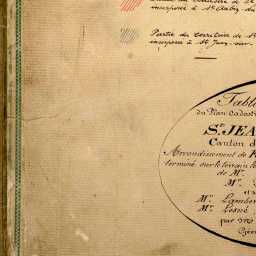 incorporé à St Aubin du
Partie du territoire de St
incorporé à St Jean-sur-
Table
du Plan cadast
St. JEA
Canton d
Arrondissement de F
terminé sur le terrain le
de Mr.
Mr.
et
Mr. Lamber
Mr. Lesné
par
Géo